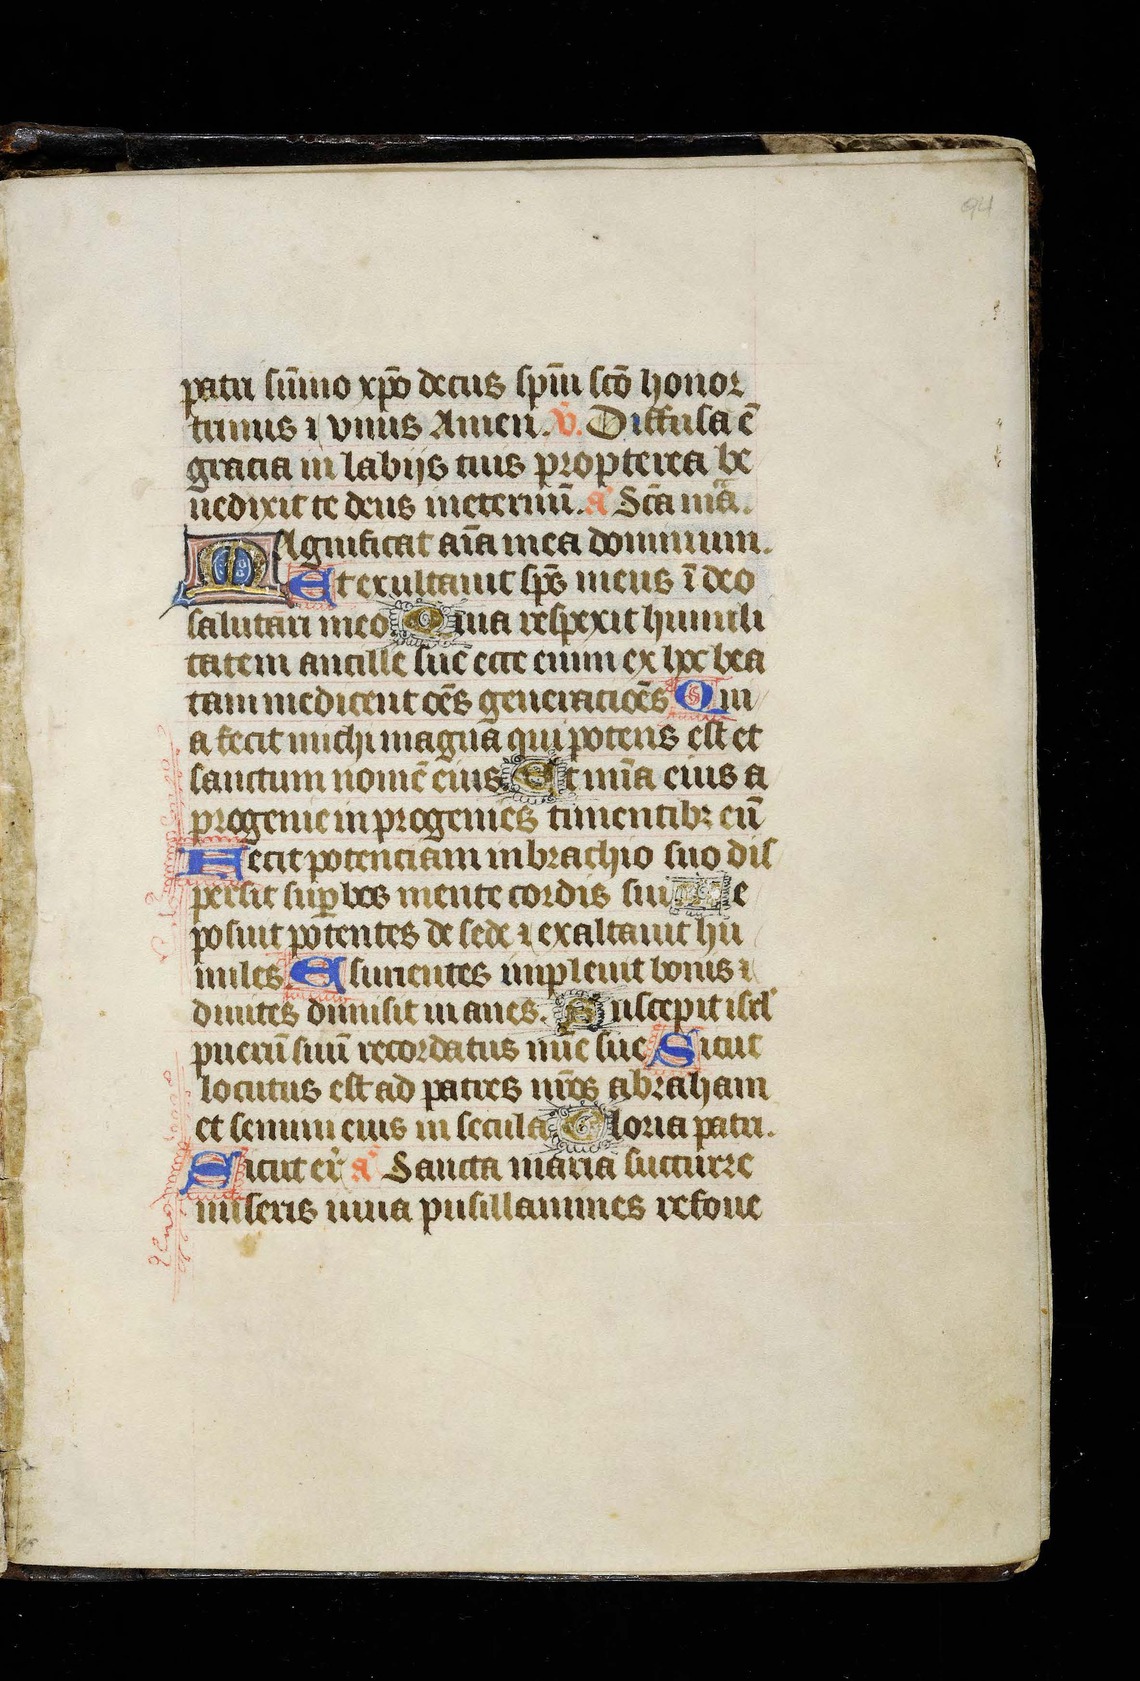 94
patri sūmo xpō decus spīui scō honor
trinus ⁊ vnus Amen. v̄. Diffusa ē
gracia in labijs tuis propterea be
nedixit te deus ineternū. a Scā mā.
MAgnificat aīa mea dominum.
Et exultauit spūs meus ī deo
salutari meo Quia respexit humili
tatem ancille sue ecce enim ex hoc bea
tam me dicent oēs generacioēs Qui
a fecit michi magna qui potens est et
sanctum nomē eius Et mīa eius a
progenie in progenies timentibꝫ eū
Fecit potenciam in brachio suo dis
persit suꝑbos mente cordis sui De
posuit potentes de sede ⁊ exaltauit hu
miles Esurientes impleuit bonis ⁊
diuites dimisit inanes. Suscepit isrl
puerū suū recordatus mīe sue Sicut
locutus est ad patres nr̄os abraham
et semini eius in secula Gloria patri.
Sicut er̄ a Sancta maria succurre
miseris iuua pusillanimes refoue